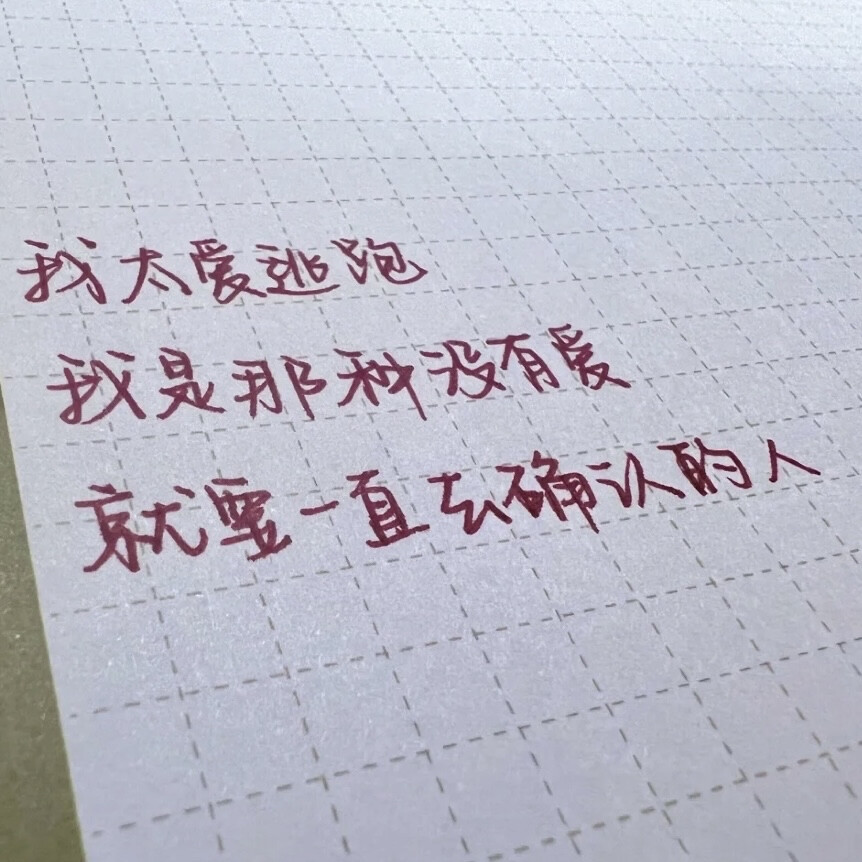 我太爱逃跑
我是那种没有爱
就要一直去确认的人